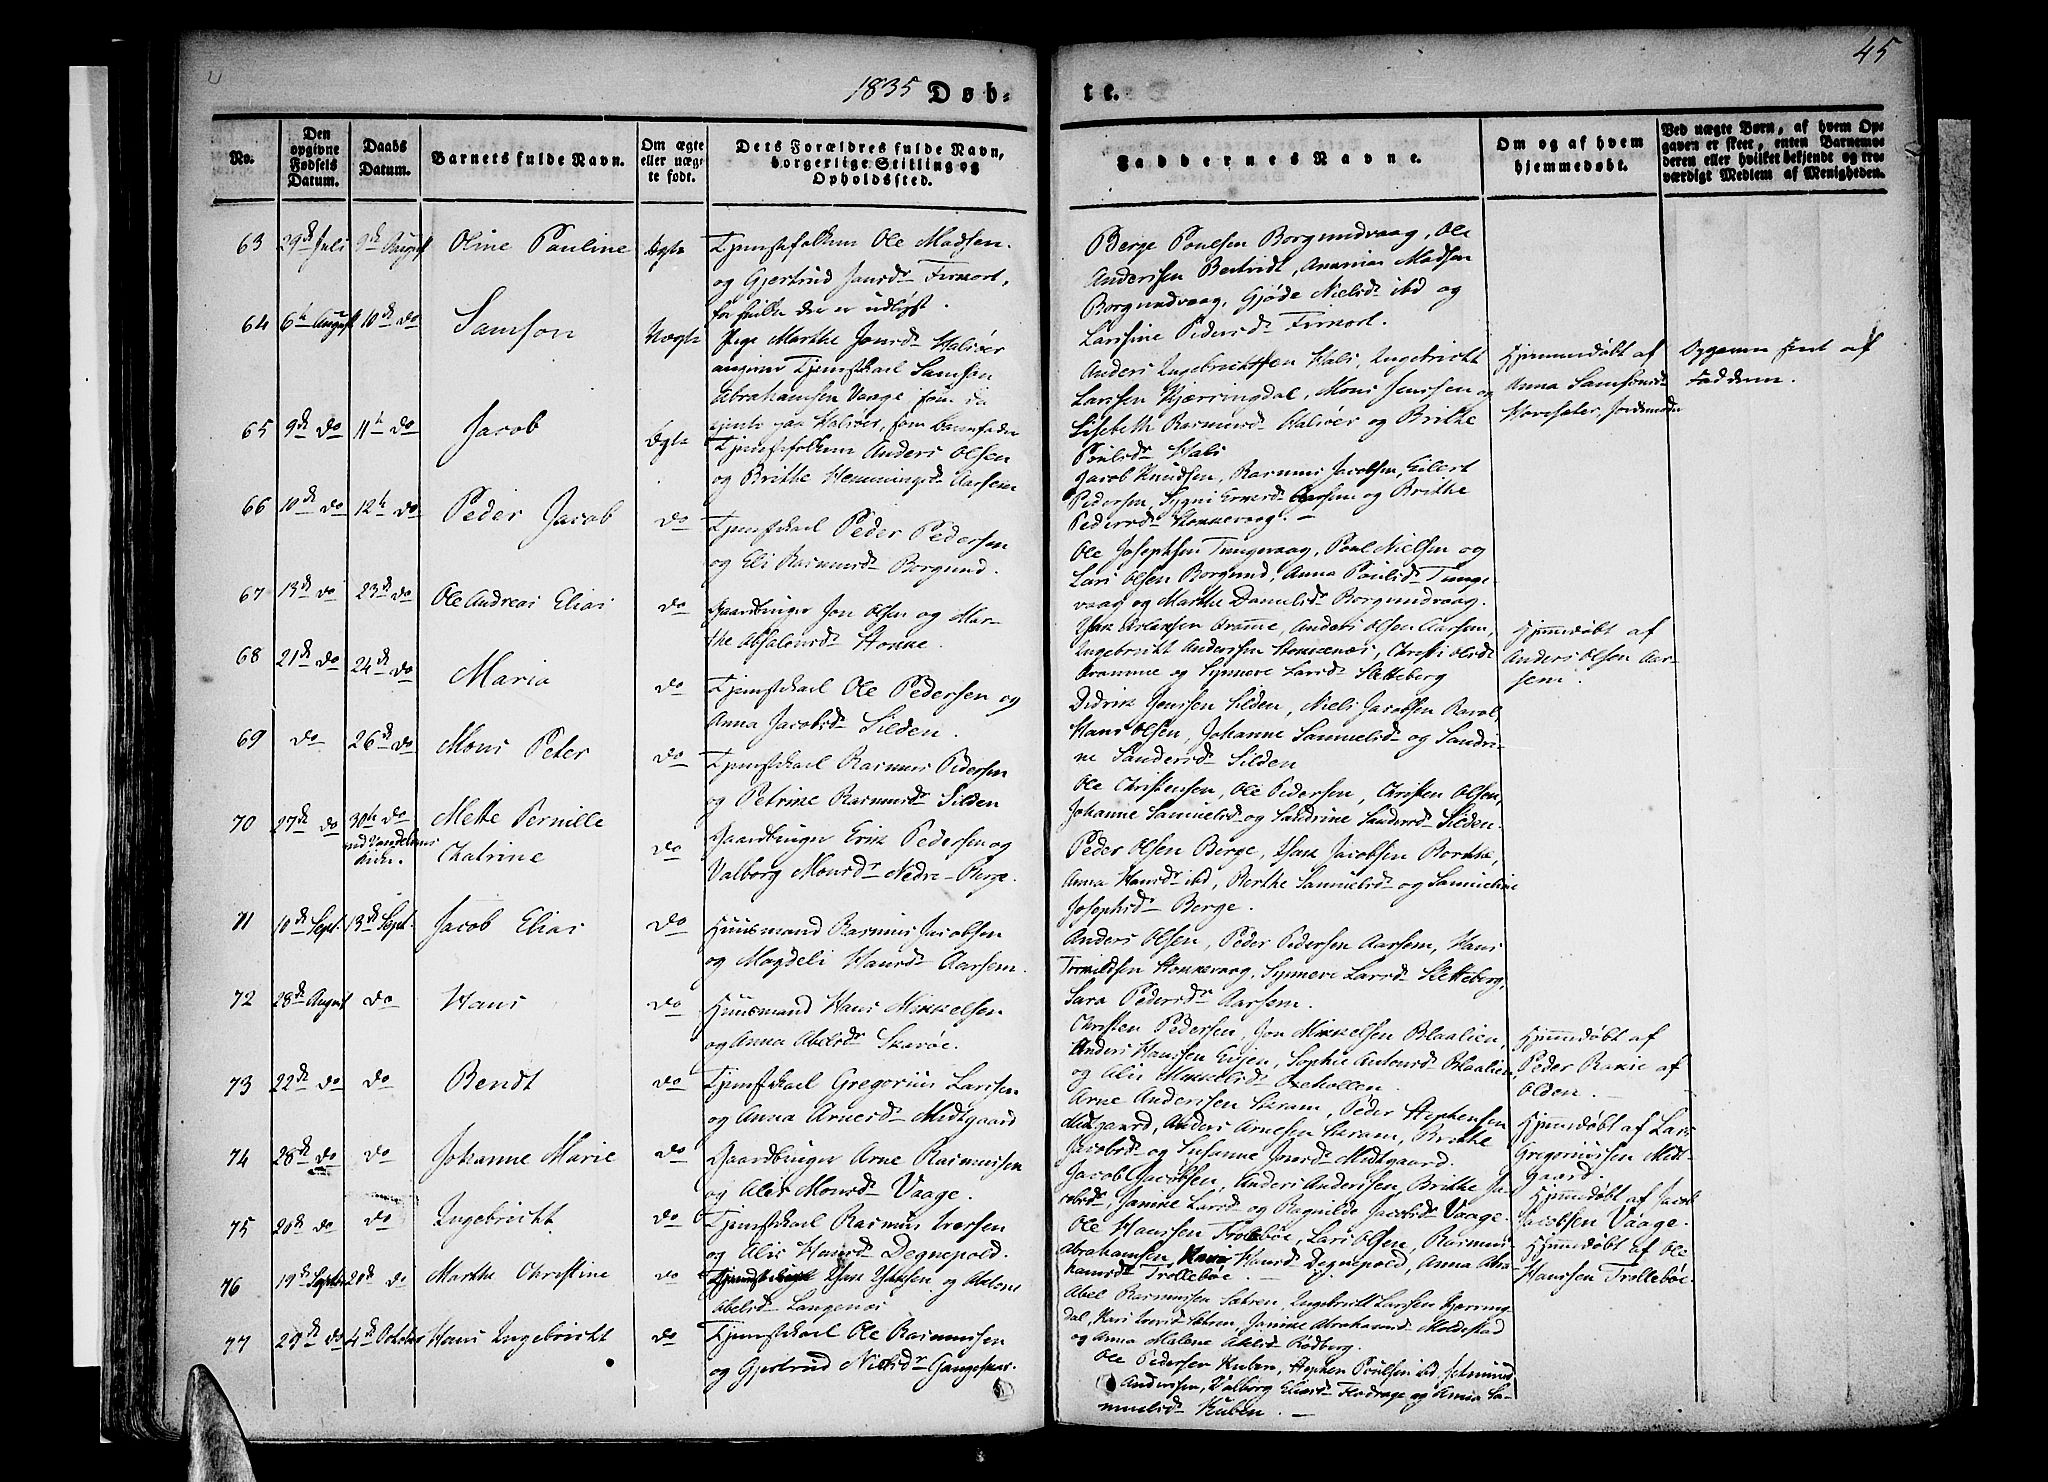 45
1835 Døb- te.
No.
Den opgivne Fødsels Datum.
Daabs Datum.
Barnets fulde Navn.
Om ægte eller uægte født.
Dets Forældres fulde Navn, borgerlige Stilling og Opholdssted.
Faddernes Navne.
Om og af hvem hjemmedøbt.
Ved uægte Børn, af hvem Opgaven er skeet, enten Barnemoderen eller hvilket bekjendt og troværdigt Medlem af Menigheden.
63 29de Juli 9de August Oline Pauline Ægte
Tjenestefolkene Ole Madsen
og Gjertrud Jansdr
for hvilke der er udlyst.
Berge Poulsen Borgundvaag, Ole
Anderssen Ananias Madsen
Borgundvaag, Gjøde Nielsdr ibd og
Larsine Pedersdr
64 6te August 10de do Samson Uægte
Pige Marthe Jonsdr Halsør
angiver Tjenestkarl Samson
Abrahamsen Vaage som
som barnefader
Anders Ingebrichtsen Hals, Ingebricht
Larssen Kjærringdal, Mons Jenssen og
Lisebeth Rasmusdr Halsør og Brithe
Poulsdr Hals
Hjemmedøbt af
Anna Samsonsdr
Opgaven skeet af
Fadderne.
65 9de do 11te do Jacob Ægte
Tjenestefolkene Anders Olsen
og Brithe Hemmingsdr Aarsem
Jacob Knudsen, Rasmus Jacobsen, Eilert
Pedersen, Sygni Aarsem og Brithe
Pedersdr Honnevaag. –
66 10de do 12te do Peder Jacob do
Tjenestkarl Peder Pedersen
og Eli Rasmusdr Borgund.
Ole Josephsen Tungevaag, Poul Nielsen og
Lars Olsen Borgund, Anna Poulsdr Tunge-
vaag og Marthe Danielsdr Borgundvaag.
67 13de do 23de do Ole Andreas Elias do
Gaardbruger Jon Olsen og Mar-
the Absalonsdr
Anders Olsen Aarsem,
Ingebricht Anderssen Christi Olsdr
og Synneve Larsdr Sletteberg
Hjemmedøbt af
Anders Olsen Aar-
sem.
68 21de do 24de do Maria do
Tjenestkarl Ole Pedersen og
Anna Jacobsdr Silden.
Didrik Jenssen Silden, Niels Jacobsen
Hans Olsen, Johanne Samuelsdr og Sandri-
ne Sandersdr Silden
69 do 26de do Mons Peter do
Tjenestkarl Rasmus Pedersen
og Petrine Rasmusdr Silden
Ole Christensen, Ole Pedersen, Christen Olsen,
Johanne Samuelsdr og Sandrine Sandersdr Silden.
70 27de do 30te do Mette Pernille
Chatrine do
Gaardbruger Erik Pedersen og
Valborg Monsdr Nedre-Berge.
Peder Olsen Berge, Isak Jacobsen
Anna Hansdr ibd, Berthe Samuelsdr og Samueline
Josephsdr Berge.
71 10de Sept. 13de Sept. Jacob Elias do
Huusmand Rasmus Jacobsen
og Magdeli Hansdr Aarsem.
Anders Olsen, Peder Pedersen Aarsem, Hans
Honnevaag, Synneve Larsdr Sletteberg,
Sara Pedersdr Aarsem.
72 28de August do Hans do
Huusmand Hans Mikkelsen
og Anna Abelsdr Skavøe.
Christen Pedersen, Jon Mikkelsen Blaalien,
Anders Hanssen Evjen, Sophie Antonsdr Blaalien
og Alis Mikkelsdr
Hjemmedøbt af
Peder af
Olden. –
73 22de do do Bendt do
Tjenestkarl Gregorius Larssen
og Anna Arnesdr Midtgaard
Arne Anderssen Skram, Peder Stephensen
Midtgaard, Anders Arnesen Skram, Brithe
Jacobsdr og Susanne Jonsdr Midtgaard.
Hjemmedøbt af Lars
Gregoriussen Midt-
gaard.
74 28de do do Johanne Marie do
Gaardbruger Arne Rasmussen
og Alis Monsdr Vaage.
Jacob Jacobsen, Anders Anderssen, Brithe Ja-
cobsdr, Janike Larsdr og Ragnilde Jacobsdr Vaage.
Hjemmedøbt af Jacob
Jacobsen Vaage.
75 20de do do Ingebricht do
Tjenestkarl Rasmus Iversen
og Alis Hansdr Degnepold.
Ole Hanssen Trolebøe, Lars Olsen, Rasmus
Abrahamsen, Hansdr Degnepold, Anna Abra-
hamsdr Trollebøe. –
Hjemmedøbt af Ole
Hanssen Trollebøe.
76 19de Septbr 20de do Marthe Christine do
Isak og
Abelsdr Langenæs
Abel Rasmussen Sætren, Ingebricht Larssen Kjærring-
dal, Kari Iversdr Sætren, Janike Abrahamsdr Moldestad
og Anna Malene Rødberg.
77 29de do 4de October Hans Ingebricht do
Tjenestkarl Ole Rasmussen
og Gjertrud Nielsdr
Ole Pedersen Kuben, Stephen Poulsen ibd,
Anderssen, Valborg Eliasdr og Anna Sa-
muelsdr Kuben. –